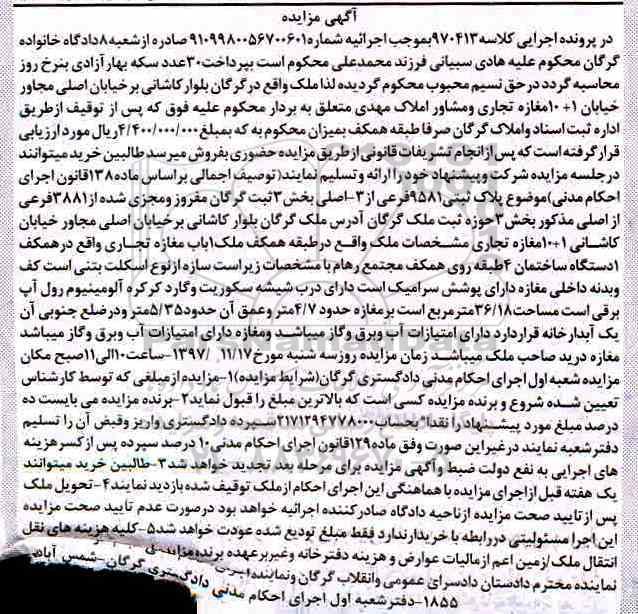 آگهی مزایده
در پرونده اجرایی کلاسه ۹۷۰۴۱۳بموجب اجرائیه شماره ۹۱۰۹۹۸۰۰۵۶۷۰۰۶۰۱ صادره از شعبه ۸دادگاه خانواده
گرگان محکوم علیه هادی سیبیانی فرزند محمدعلی محکوم است بپرداخت ۳۰عدد سکه بهار آزادی بنرخ روز
محاسبه گردد در حق نسیم محبوب محکوم گردیده لذا ملک واقع در گرگان بلوار کاشانی بر خیابان اصلی مجاور
خیابان ۱+ ۱۰مغازه تجاری ومشاور املاک مهدی متعلق به بردار محکوم علیه فوق که پس از توقیف از طریق
اداره ثبت اسناد واملاک گرگان صرفا طبقه همکف بمیزان محکوم به که بمبلغ ۴/۴۰۰/۰۰۰/۰۰۰ریال مورد ارزیابی
قرار گرفته است که پس از انجام تشریفات قانونی از طریق مزایده حضوری بفروش میرسد طالبین خرید میتوانند
در جلسه مزایده شرکت و پیشنهاد خود را ارائه و تسلیم نمایند(توصیف اجمالی بر اساس ماده ۱۳۸قانون اجرای
احکام مدنی)موضوع پلاک ثبتی ۹۵۸۱فرعی از ۳-اصلی بخش ۳ثبت گرگان مفروز ومجزی شده از ۳۸۸۱فرعی
از اصلی مذکور بخش ۳حوزه ثبت ملک گرگان آدرس ملک گرگان بلوار کاشانی بر خیابان اصلی مجاور خیابان
کاشانی ۱+۱۰مغازه تجاری مشخصات ملک واقع در طبقه همکف ملک ۱باب مغازه تجاری واقع در همکف
۱دستگاه ساختمان ۴طبقه روی همکف مجتمع رهام با مشخصات زیر است سازه از نوع اسکلت بتنی است کف
وبدنه داخلی مغازه دارای پوشش سرامیک است دارای درب شیشه سکوریت وگارد کرکره آلومینیوم رول آپ
برقی است مساحت ۳۶/۱۸مترمربع است بر مغازه حدود ۴/۷متر وعمق آن حدود ۵/۳۵متر ودر ضلع جنوبی آن
یک آبدارخانه قرار دارد دارای امتیازات آب وبرق وگاز میباشد ومغازه دارای امتیازات آب وبرق وگاز میباشد
مغازه در ید صاحب ملک میباشد زمان مزایده روز سه شنبه مورخ ۱۱/۱۷/ ۱۳۹۷-ساعت ۱۰الی ۱۱صبح مکان
مزایده شعبه اول اجرای احکام مدنی دادگستری گرگان(شرایط مزایده)۱-مزایده از مبلغی که توسط کارشناس
تعیین شده شروع و برنده مزایده کسی است که بالاترین مبلغ را قبول نماید۲-برنده مزایده می بایست ده
درصد مبلغ مورد پیشنهاد را نقدا بحساب ۲۱۷۱۲۹۴۷۷۸۰۰۰سپرده دادگستری واریز وقبض آن را تسلیم
دفتر شعبه نمایند در غیر این صورت وفق ماده ۱۲۹قانون اجرای احکام مدنی ۱۰ درصد سپرده پس از کسر هزینه
های اجرایی به نفع دولت ضبط و آگهی مزایده برای مرحله بعد تجدید خواهد شد۳-طالبین خرید میتوانند
یک هفته قبل از اجرای مزایده با هماهنگی این اجرای احکام از ملک توقیف شده بازدید نمایند۴-تحویل ملک
پس از تایید صحت مزایده از ناحیه دادگاه صادر کننده اجرائیه خواهد بود در صورت عدم تایید صحت مزایده
این اجرا مسئولیتی در رابطه با خریدار ندارد فقط مبلغ تودیع شده عودت خواهد شد۵-کلیه هزینه های نقل
انتقال ملک از مین اعم از مالیات عوارض و هزینه دفترخانه وغیر بر عهده برنده مزایده
نماینده محترم دادستان دادسرای عمومی وانقلاب گرگان ونماینده
۱۸۵۵-دفتر شعبه اول اجرای احکام مدنی دادگستری گرگان-شمس آباد